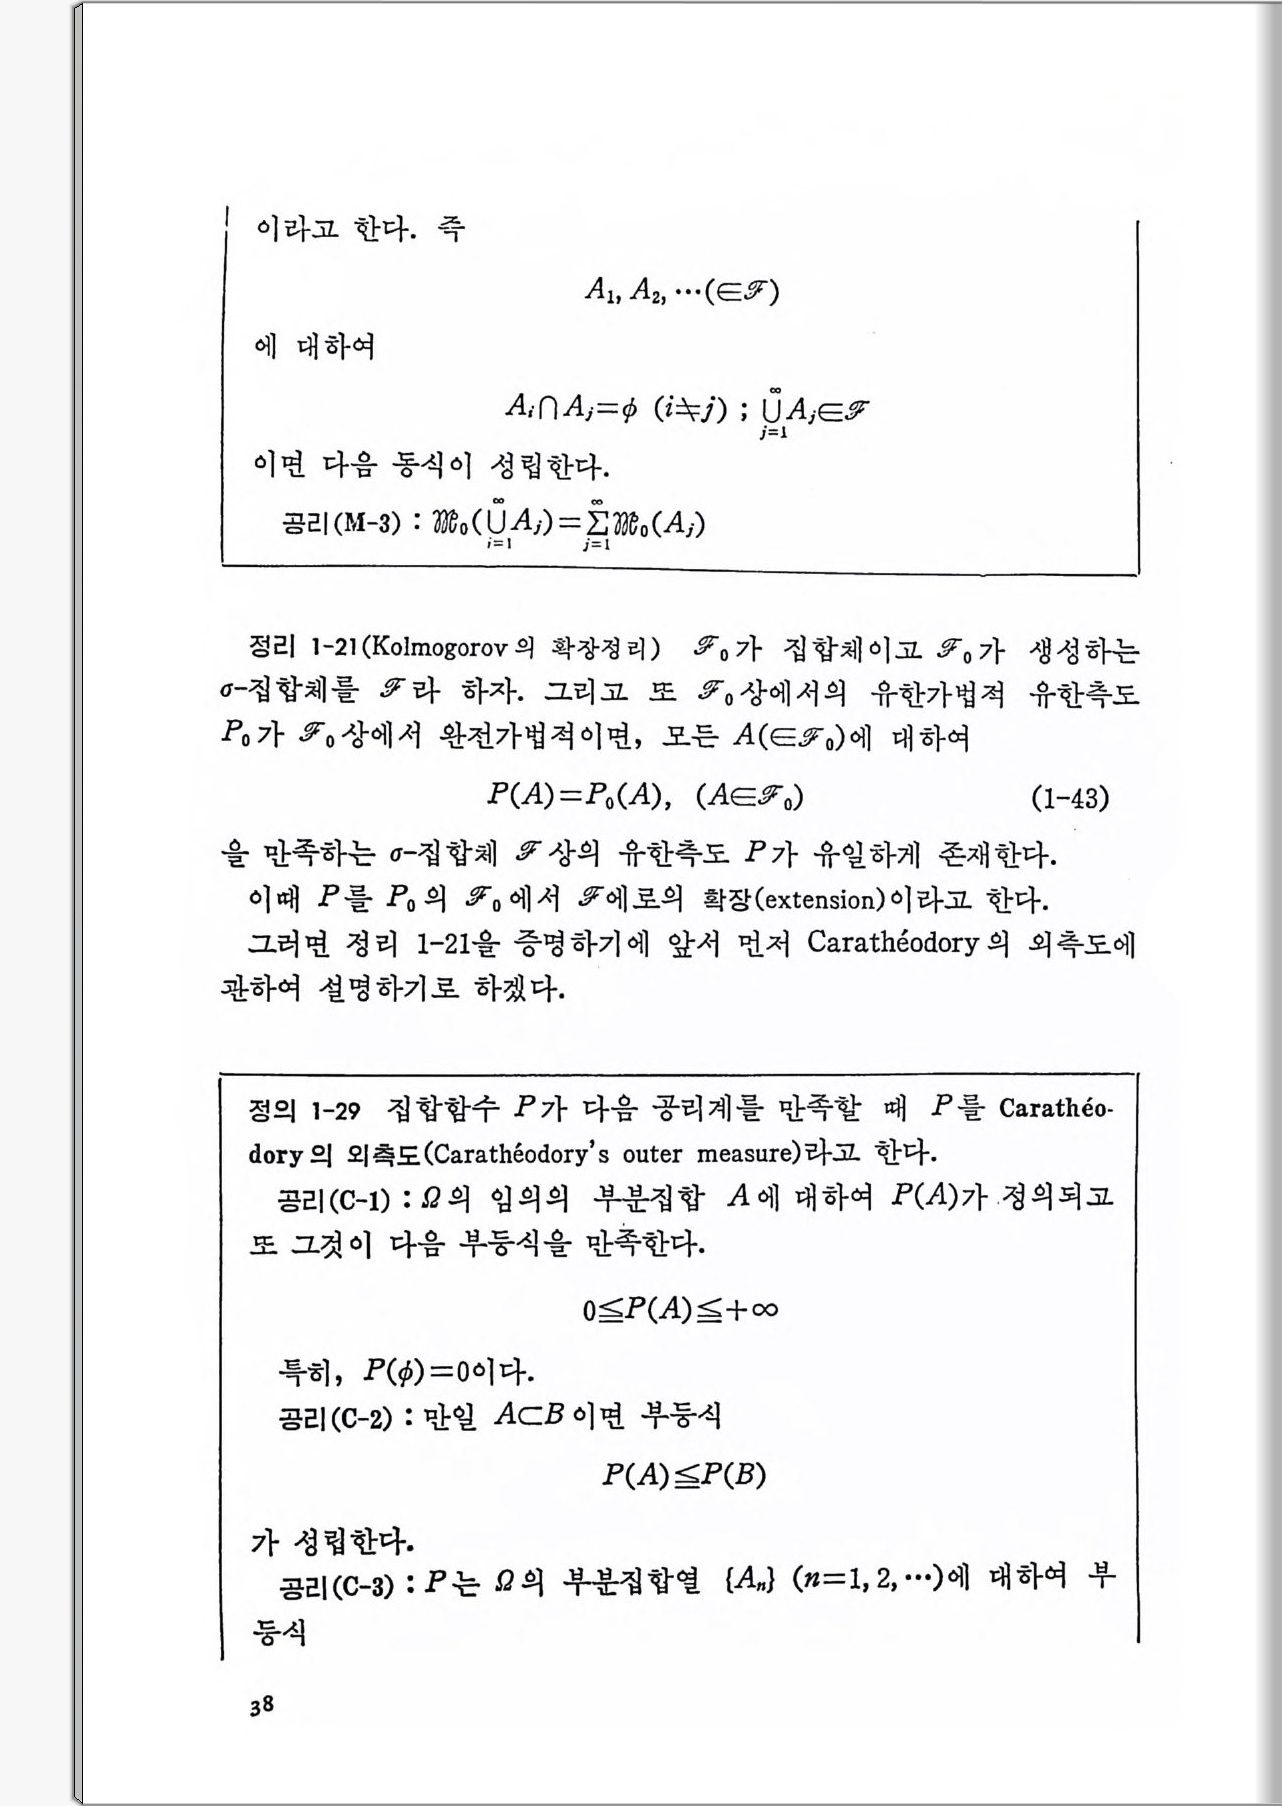 이라고 한다. 즉
A₁, A₂, ⋯(∈ℱ)
에 대하여
Aᵢ∩Aⱼ=ϕ (i≒j) ; ⋃_{j=1}^{∞} Aⱼ∈ℱ
이면 다음 동식이 성립한다.
공리(M-3) : 𝔐₀(⋃_{i=1}^{∞} Aⱼ)=∑_{j=1}^{∞} 𝔐₀(Aⱼ)
정리 1-21(Kolmogorov의 확장정리) ℱ₀가 집합체이고 ℱ₀가 생성하는
σ-집합체를 ℱ라 하자. 그리고 또 ℱ₀상에서의 유한가법적 유한측도
P₀가 ℱ₀상에서 완전가법적이면, 모든 A(∈ℱ₀)에 대하여
P(A)=P₀(A), (A∈ℱ₀) (1-43)
을 만족하는 σ-집합체 ℱ상의 유한측도 P가 유일하게 존재한다.
이때 P를 P₀의 ℱ₀에서 ℱ에로의 확장(extension)이라고 한다.
그러면 정리 1-21을 증명하기에 앞서 먼저 Carathéodory의 외측도에
관하여 설명하기로 하겠다.
정의 1-29 집합함수 P가 다음 공리계를 만족할 때 P를 Carathéo-
dory의 외측도(Carathéodory's outer measure)라고 한다.
공리(C-1) : Ω의 임의의 부분집합 A에 대하여 P(A)가 정의되고
또 그것이 다음 부등식을 만족한다.
0≦P(A)≦+∞
특히, P(ϕ)=0이다.
공리(C-2) : 만일 A⊂B이면 부등식
P(A)≦P(B)
가 성립한다.
공리(C-3) : P는 Ω의 부분집합열 {Aₙ} (n=1, 2, ⋯)에 대하여 부
등식
38